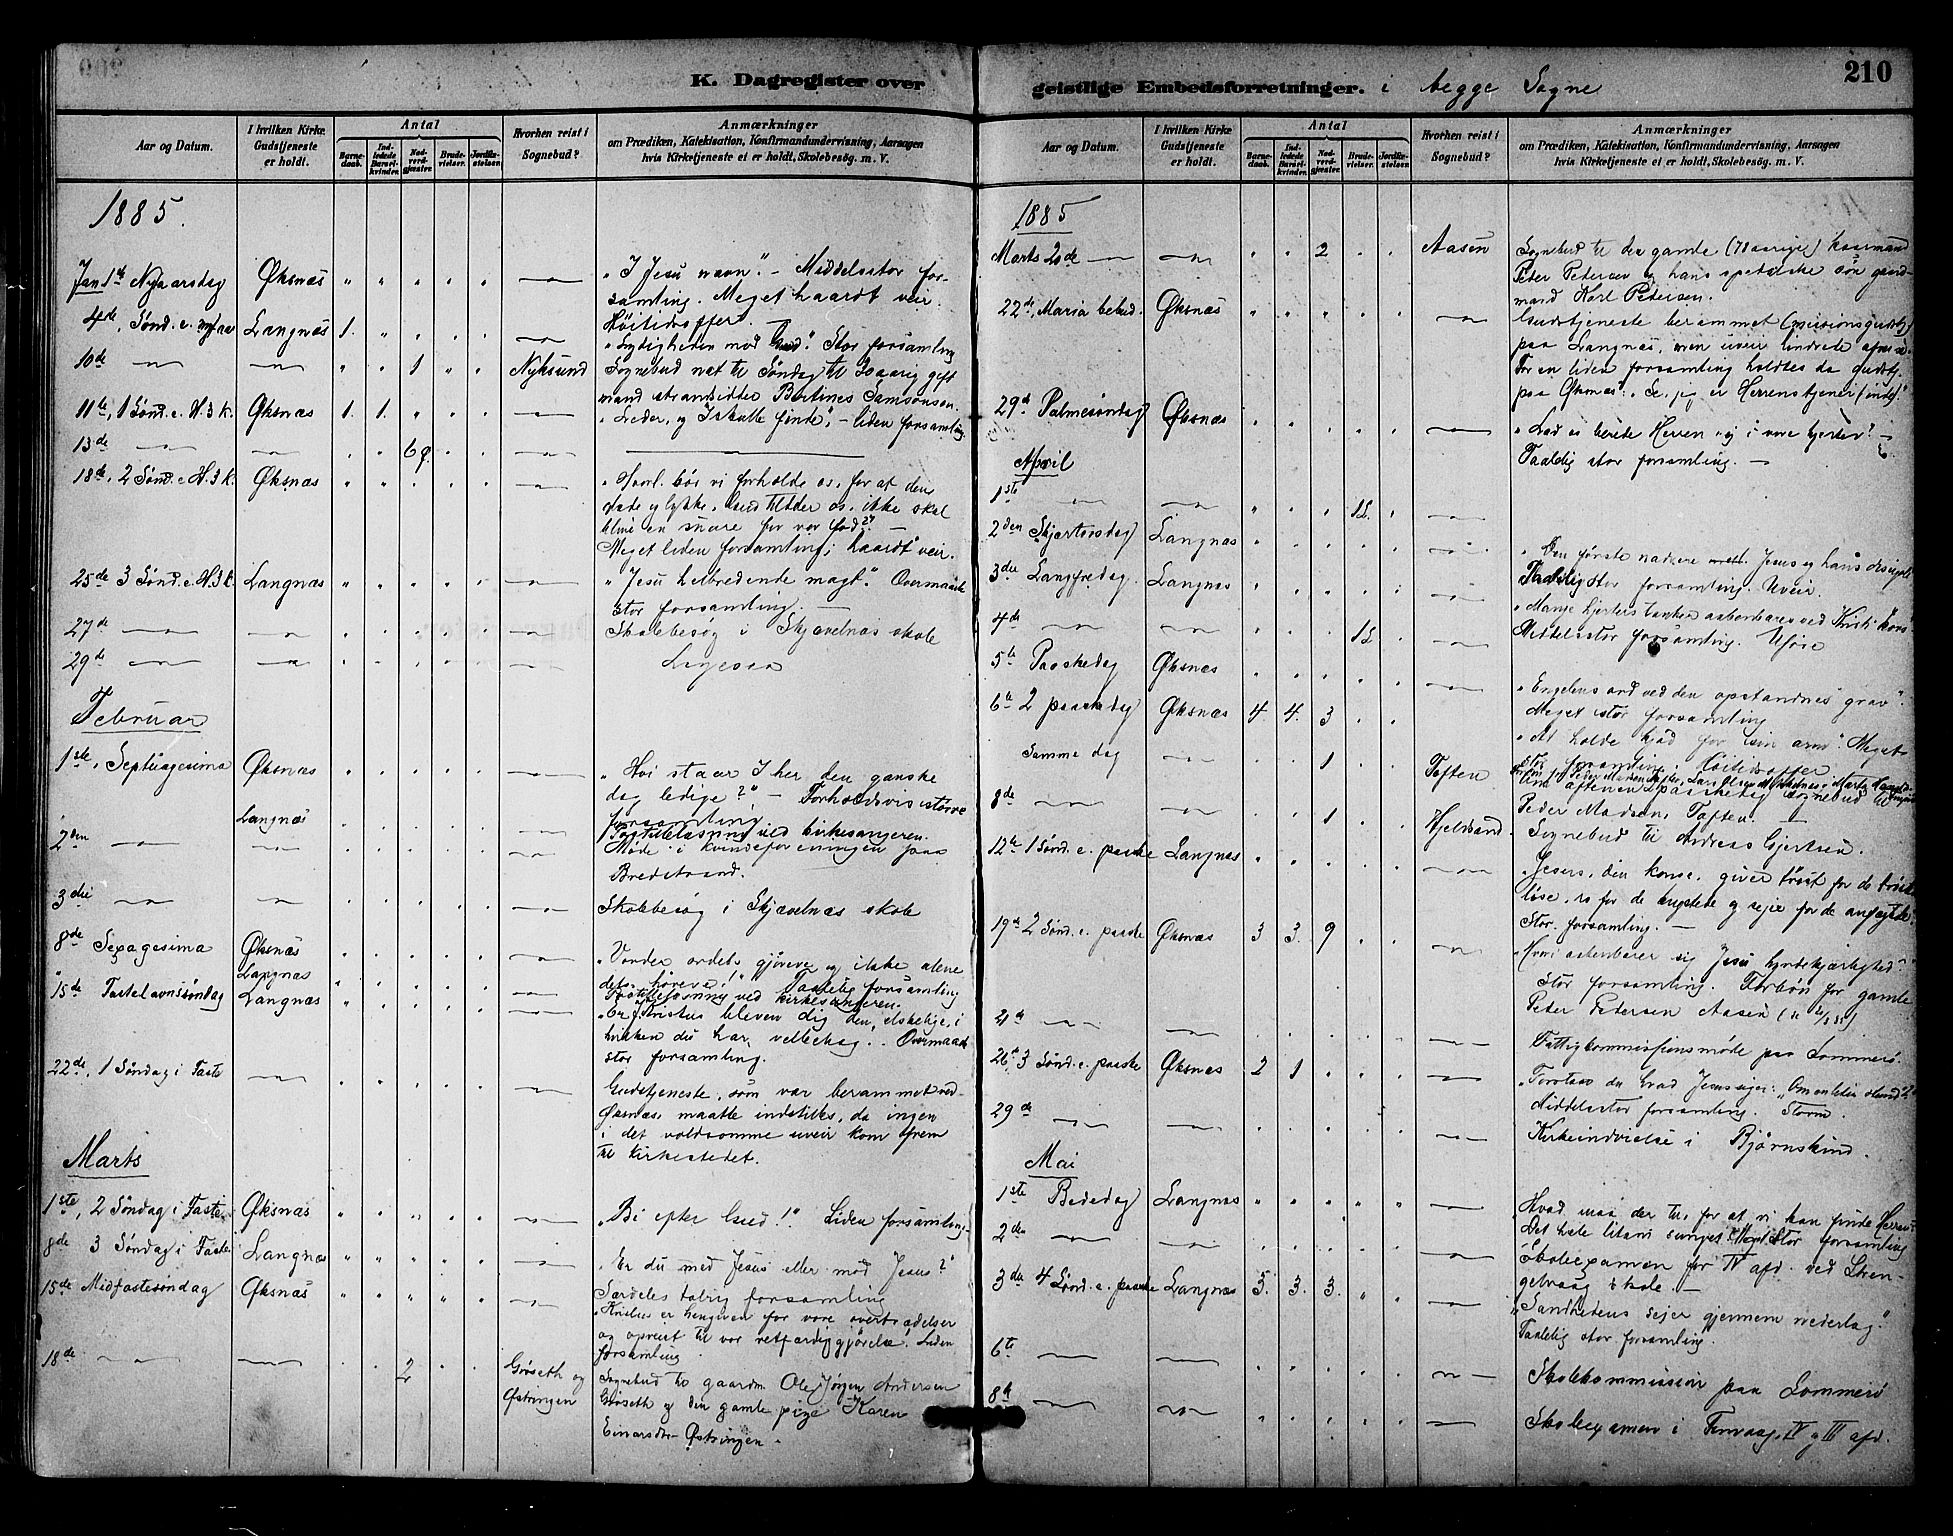 209
K. Dagregister over
Aar og Datum.
I hvilken Kirke Gudstjeneste er holdt.
Antal
Barnedaab.
Indledede Barselkvinder.
Nadverdgjæster.
Brudevielser.
Jordfæstelser.
Hvorhen reist i Sognebud?
Anmærkninger
om Prædiken, Katekisation, Konfirmandundervisning, Aarsagen
hvis Kirketjeneste ei er holdt, Skolebesøg. m. V.
1885.
Jan 1ste Nyaarsdag Øksnæs " " " " " — "I Jesu navn". — Middelsstor for-
samling. Meget haardt veir.
Høitidsoffer.
4de, Sønd. e. nyaar Langnæs 1. " " " " — "Lydigheden mod Gud". Stor forsamling
10de — — " " 1 " " Nyksund Sognebud nat til Søndag til gift
mand strandsidder Bertines Samsonsen.
11te, 1 Sønd. e. H. 3 k. Øksnæs 1. 1. " " " — "Leder, og I skulle finde", – liden forsamling
13de — — 6
18de, 2 Sønd. e. H. 3 k. Øksnæs " " " " " — bør vi forholde os, for at den
og lykke, Gud os, ikke skal
blive en snare for vor fod?" —
Meget liden forsamling; haardt veir.
25de 3 Sønd. e. H. 3 k. Langnæs " " " " " — "Jesu helbredende magt". Overmaade
stor forsamling. —
27de — — Skolebesøg i Skjævelnæs skole
29de — —
Februar
1ste, Septuagesima Øksnæs — "Hvi staar I her den ganske
dag ledige?" — Forholdsvis større
forsamling
Langnæs Postillelæsning ved kirkesangeren.
2den — — Møde i kvindeforeningen paa
Bredstrand.
3die — — Skolebesøg i Skjævelnæs skole
8de Sexagesima Øksnæs — "Vorder ordets gjørere og ikke alene
dets hørere!" Taalelig forsamling
Langnæs Postillelæsning ved kirkesangeren.
15de Fastelavnssøndag Langnæs — "Er Kristus bleven dig den elskelige, i
hvilken du har velbehag". Overmaade
stor forsamling.
22de, 1 Søndag i Faste — Gudstjeneste, som var berammet ved
Øksnæs, maatte indstilles, da ingen
i det voldsomme uveir kom frem
til kirkestedet.
Marts
1ste, 2 Søndag i Faste Øksnæs — "Bi efter Gud!" Liden forsamling
8de 3 Søndag i Faste Langnæs — "Er du med Jesus eller mod Jesus?"
Særdeles talrig forsamling
15de Midfastesøndag Øksnæs — "Kristus er hengiven for vore overtrædelser
og opreist til vor retfærdiggjørelse". Liden
forsamling.
18de — — 2 Grøseth og Østringen Sognebud to gaardm. Ole Jørgen Andersen
Grøseth og den gamle pige Karen
Einarsdtr Østringen.
210
geistlige Embedsforretninger. i begge Sogne
Aar og Datum.
I hvilken Kirke Gudstjeneste er holdt.
Antal
Barnedaab.
Indledede Barselkvinder.
Nadverdgjæster.
Brudevielser.
Jordfæstelser.
Hvorhen reist i Sognebud?
Anmærkninger
om Prædiken, Katekisation, Konfirmandundervisning, Aarsagen
hvis Kirketjeneste ei er holdt, Skolebesøg. m. V.
1885
Marts 20de — — 2 Aasen Sognebud til den gamle (78 aarige) kaarmand
Peter Petersen og hans spedalske søn gaard-
mand Karl Petersen.
22de, Maria bebud. Øksnæs — Gudstjeneste berammet (missionsgudstj)
paa Langnæs, men uveir hindrede
For en liden forsamling holdtes da gudstj.
paa Øksnæs. "Se, jeg er Herrens tjener(inde)!"
29de Palmesøndag Øksnæs — "Lad os berede Herren vej i vore hjerter!" —
Taalelig stor forsamling. —
April
1ste — — 1
2den Skjertorsdag Langnæs "Den første nadvere Jesus og hans disciple
Taalelig stor forsamling. Uveir.
3die Langfredag Langnæs "Mange hjerters tanker aabenbares ved Kristi kors
Middelsstor forsamling. Uføre
4de — — 1
5te Paaskedag Øksnæs — "Engelens ord ved den opstandnes grav".
Meget stor forsamling
6te 2 paaskedag Øksnæs 4 4. 3 "At holde kjød for sin arm". Meget
stor forsamling. Høitidsoffer
Samme dag — 1 Toften Om aftenen 2 paaskedag sognebud til
Peder Madsen, Toften.
8de — — 1 Hjeldsand Sognebud til Andreas Gjertsen.
12te 1 Sønd. e. paaske Langnæs "Jesus, den korsf. giver trøst for de trøst
løse, ro for de ængstede og sejer for de anfægtede.
Stor forsamling. —
19de 2 Sønd. e. paaske Øksnæs 3 3. 9 — "Hvori aabenbarer sig Jesu hyrdekjærlighed?"
Stor forsamling. Forbøn for gamle
Peter Petersen Aasen
21de — — Fattigkommissionsmøde paa Sommerø
26de 3 Sønd. e. paaske Øksnæs 2 1 — "Forstaar du hvad Jesus siger: "Om en liden stund"?"
Middelsstor forsamling. Storm.
29de — — Kirkeindvielse i Bjørnskind.
Mai
1ste Bededag Langnæs " " " " " — "Hvad maa der til, for at vi kan finde Herren?"
Det hele litani sunget. Meget stor forsamling
2den — — Skoleexamen for IV afd. ved Stren-
gelvaag skole. —
3die 4 Sønd. e. paaske Langnæs 5. 3. 3. — "Sandhedens sejer gjennem nederlag".
Taalelig stor forsamling.
6te — — Skolekommission paa Sommerø
8de — — Skoleexamen i Finvaag, IV og III afd.